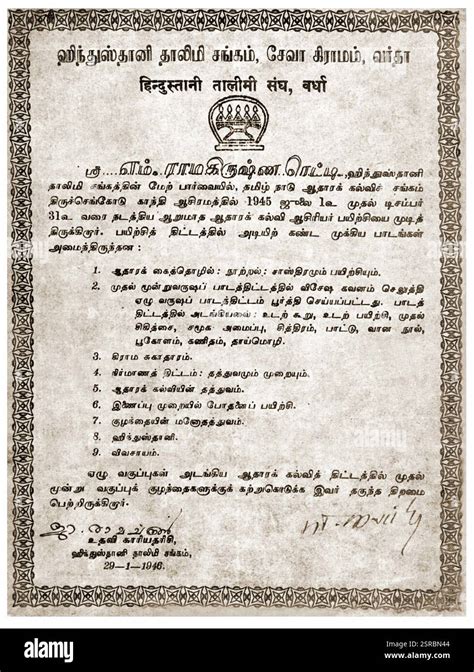 ஹிந்துஸ்தானி தாலிமி சங்கம், சேவா கிராமம், வர்தா
हिन्दुस्तानी तालीमी संघ, वर्धा
ஸ்ரீ எம். ராமகிருஷ்ண ரெட்டி, ஹிந்துஸ்தானி
தாலிமி சங்கத்தின் மேற் பார்வையில், தமிழ் நாடு ஆதாரக் கல்விச் சங்கம்
திருச்செங்கோடு காந்தி ஆசிரமத்தில் 1945 ஜுலை 1உ முதல் டிசம்பர்
31உ வரை நடத்திய ஆறுமாத ஆதாரக் கல்வி ஆசிரியர் பயிற்சியை முடித்
திருக்கிறார். பயிற்சித் திட்டத்தில் அடியிற் கண்ட முக்கிய பாடங்கள்
அமைந்திருந்தன :
1. ஆதாரக் கைத்தொழில் : நூற்றல்: சாஸ்திரமும் பயிற்சியும்.
2. முதல் மூன்றுவருஷப் பாடத்திட்டத்தில் விசேஷ கவனம் செலுத்தி
ஏழு வருஷப் பாடத்திட்டம் பூர்த்தி செய்யப்பட்டது. பாடத்
திட்டத்தில் அடங்கியவை : உடற் கூறு, உடற் பயிற்சி, முதல்
சிகிச்சை, சமூக அமைப்பு, சித்திரம், பாட்டு, வான நூல்,
பூகோளம், கணிதம், தாய்மொழி.
3. கிராம சுகாதாரம்.
4. நிர்மாணத் திட்டம் : தத்துவமும் முறையும்.
5. ஆதாரக் கல்வியின் தத்துவம்.
6. இணைப்பு முறையில் போதனைப் பயிற்சி.
7. குழந்தையின் மனோதத்துவம்.
8. ஹிந்துஸ்தானி.
9. விவசாயம்.
ஏழு வகுப்புகள் அடங்கிய ஆதாரக் கல்வித் திட்டத்தில் முதல்
மூன்று வகுப்புக் குழந்தைகளுக்கு கற்றுகொடுக்க இவர் தகுந்த திறமை
பெற்றிருக்கிறார்.
உதவி காரியதரிசி,
ஹிந்துஸ்தானி தாலிமி சங்கம்,
29-1-1946.
alamy
Image ID: 2SRBN44
www.alamy.com